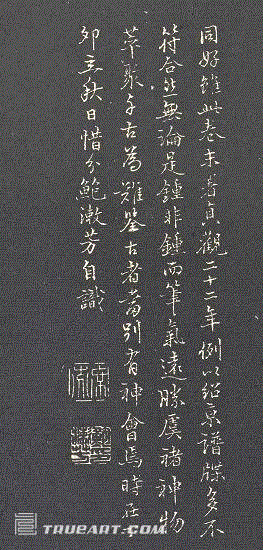 同好雖此卷未書貞觀二十二年例以紹京譜牒多不
符合然無論是鍾非鍾而筆氣遠勝虞褚神物
萃聚千古為難鑒古者當別有神會焉時在
卯立秋日惜分鮑漱芳自識
TRUEART.COM